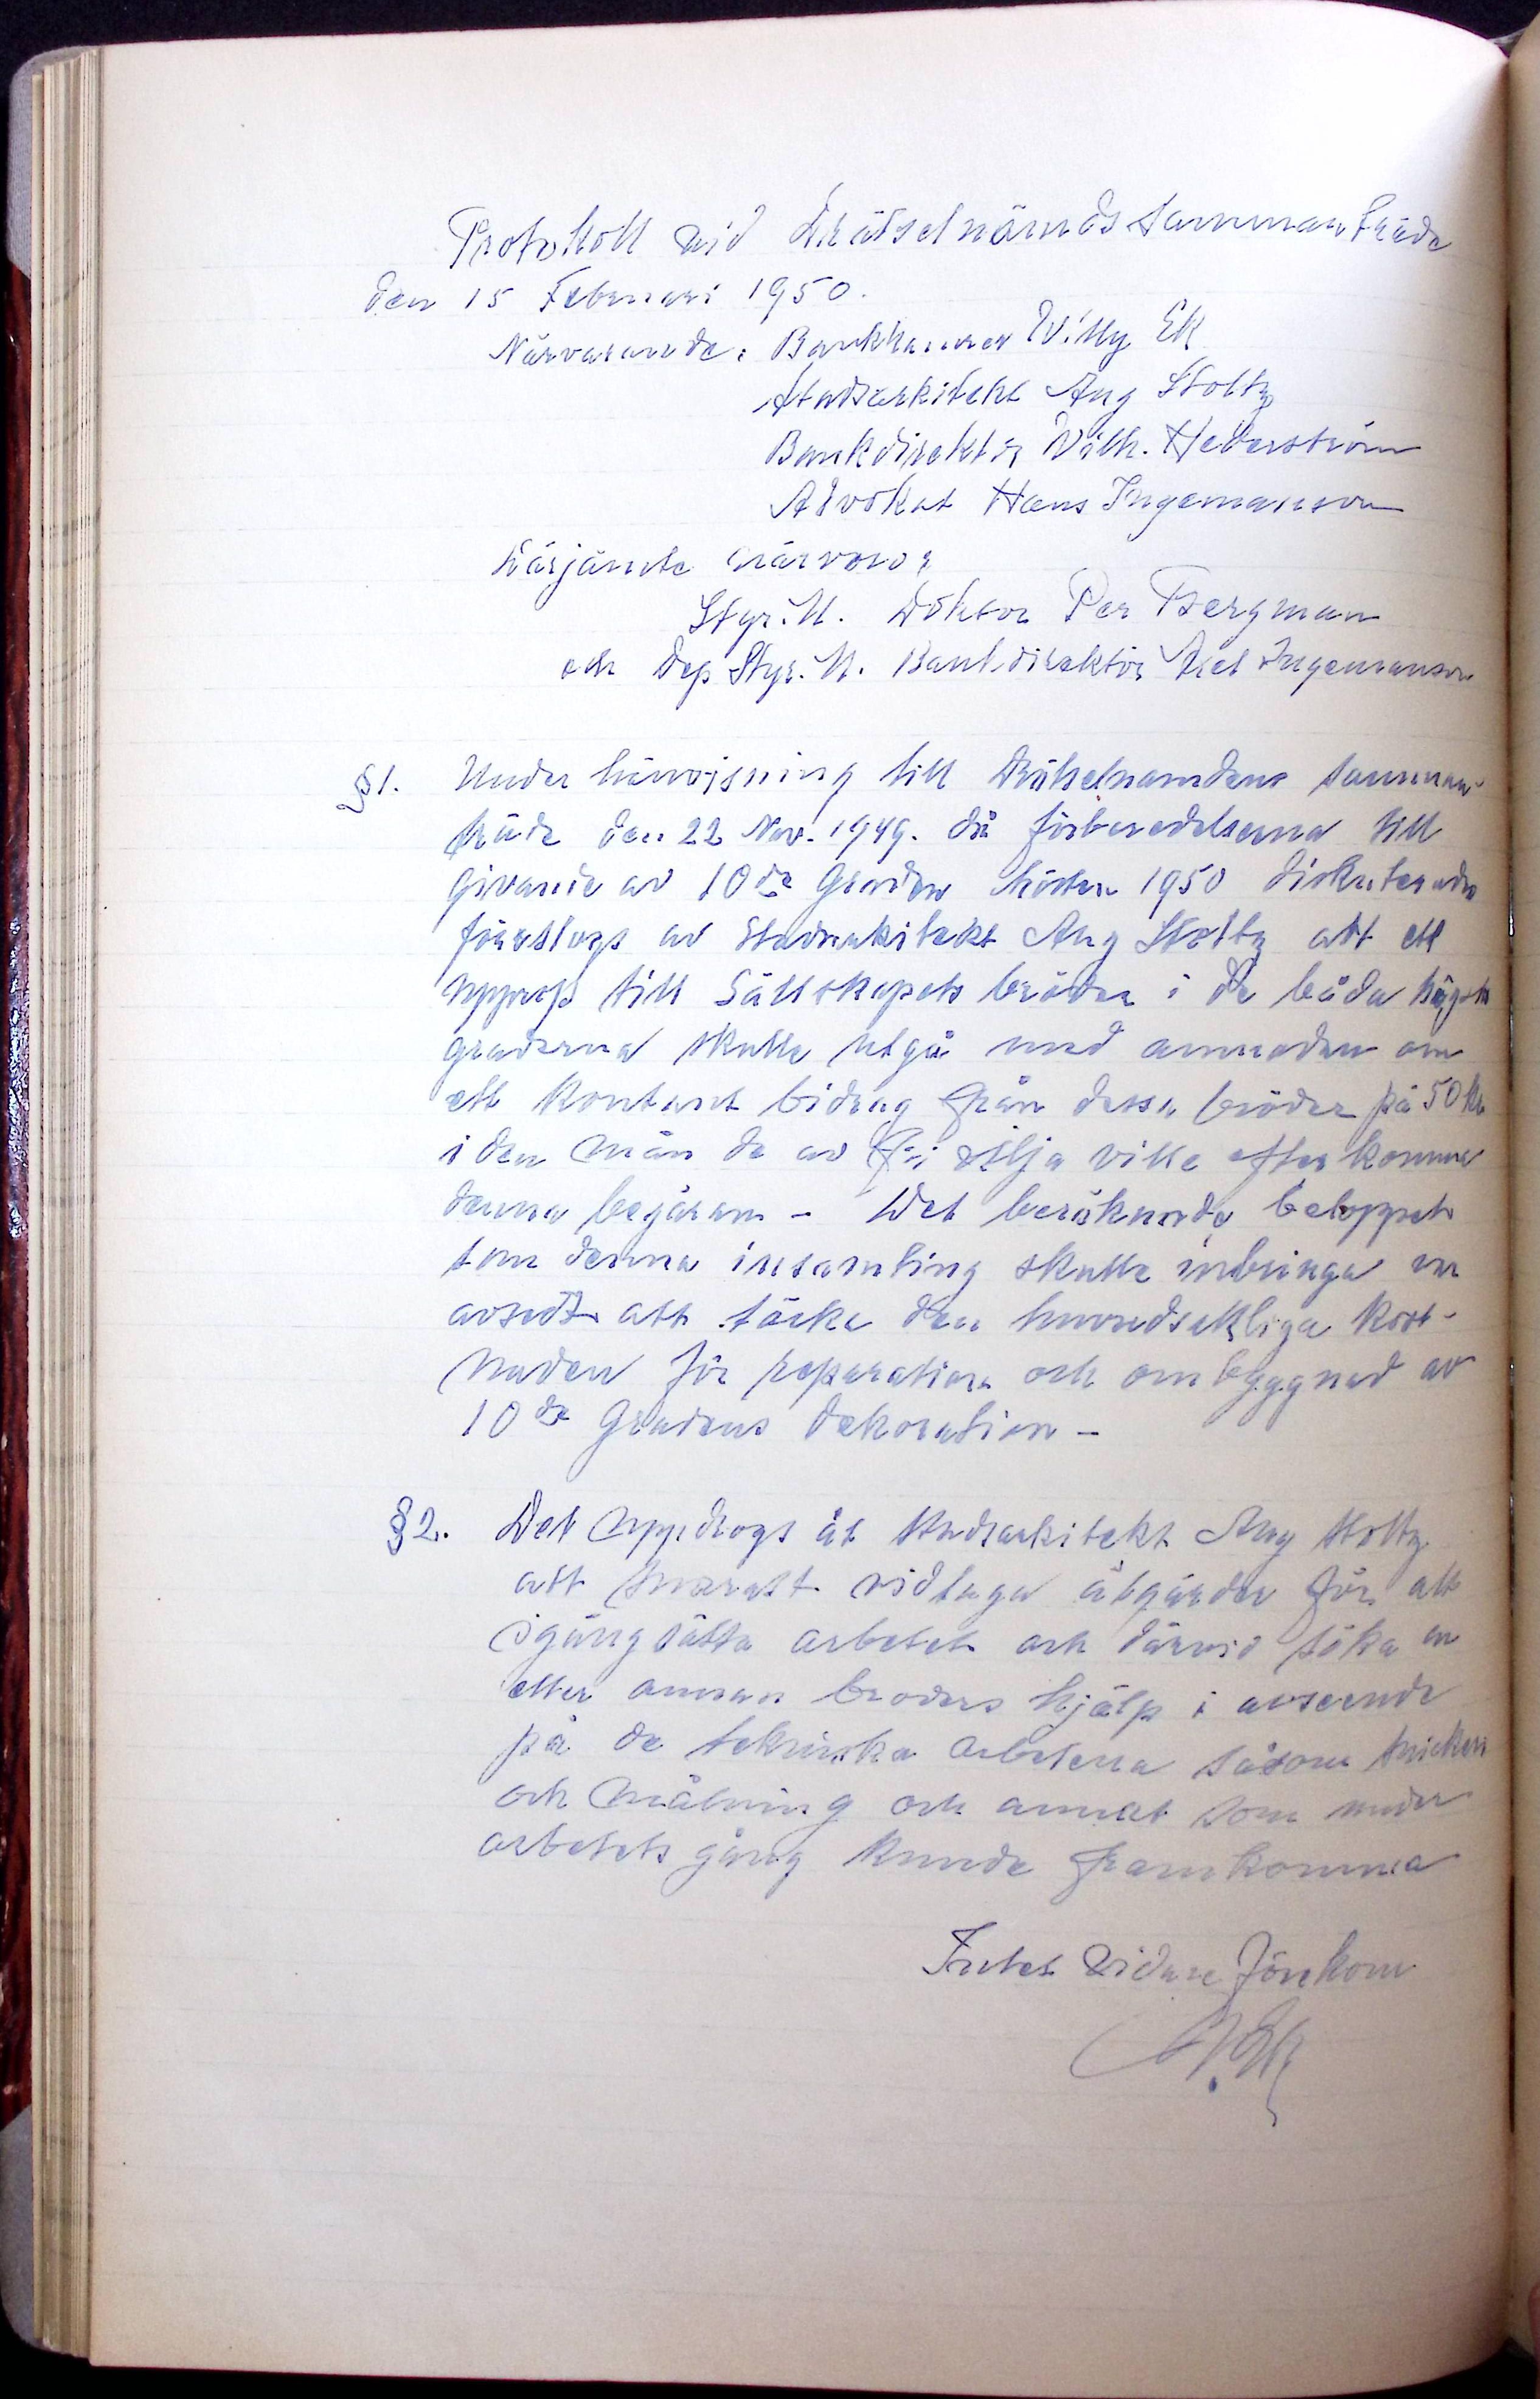 Protokoll vid Drätselnämdssammanträde
den 15 Februari 1950.
Närvarande: Bankkamrer Willy Ek
Stadsarkitekt Aug Stoltz
Bankdirektör Wilh. Hederström
Advokat Hans Ingemanson
Därjämte närvoro:
Styr. M. Doktor Per Bergman
och Dep Styr. M. Bankdirektör Axel Ingemanson
§1. Under hänvisning till Drätselnämdens samman-
träde den 22 Nov. 1949. då förberedelserna till
givande av 10de Graden hösten 1950 diskuterades
föreslogs av Stadsarkitekt Aug Stoltz att ett
upprop till Sällskapets bröder i de båda högsta
graderna skulle utgå med anmodan om
ett kontant bidrag från dessa bröder på 50 kr
i den mån de av fri vilja ville efterkomma
denna begäran - Det beräknade beloppet
som denna insamling skulle inbringa var
avsedt att täcka den huvudsakliga kost-
naden för reparation och ombyggnad av
10de Gradens dekoration -
§2. Det uppdrogs åt Stadsarkitekt Aug Stoltz
att snarast vidtaga åtgärder för att
igångsätta arbetet och därvid söka en
eller annan broders hjälp i avseende
på de tekniska arbetena såsom snickeri
och målning och annat som under
arbetets gång kunde framkomma
Intet vidare förekom
W. Ek